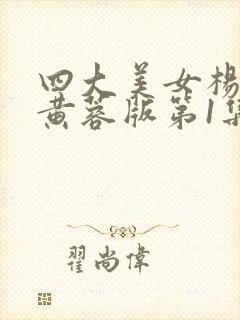 四大美女杨
黄蓉版第1集
翟尚伟